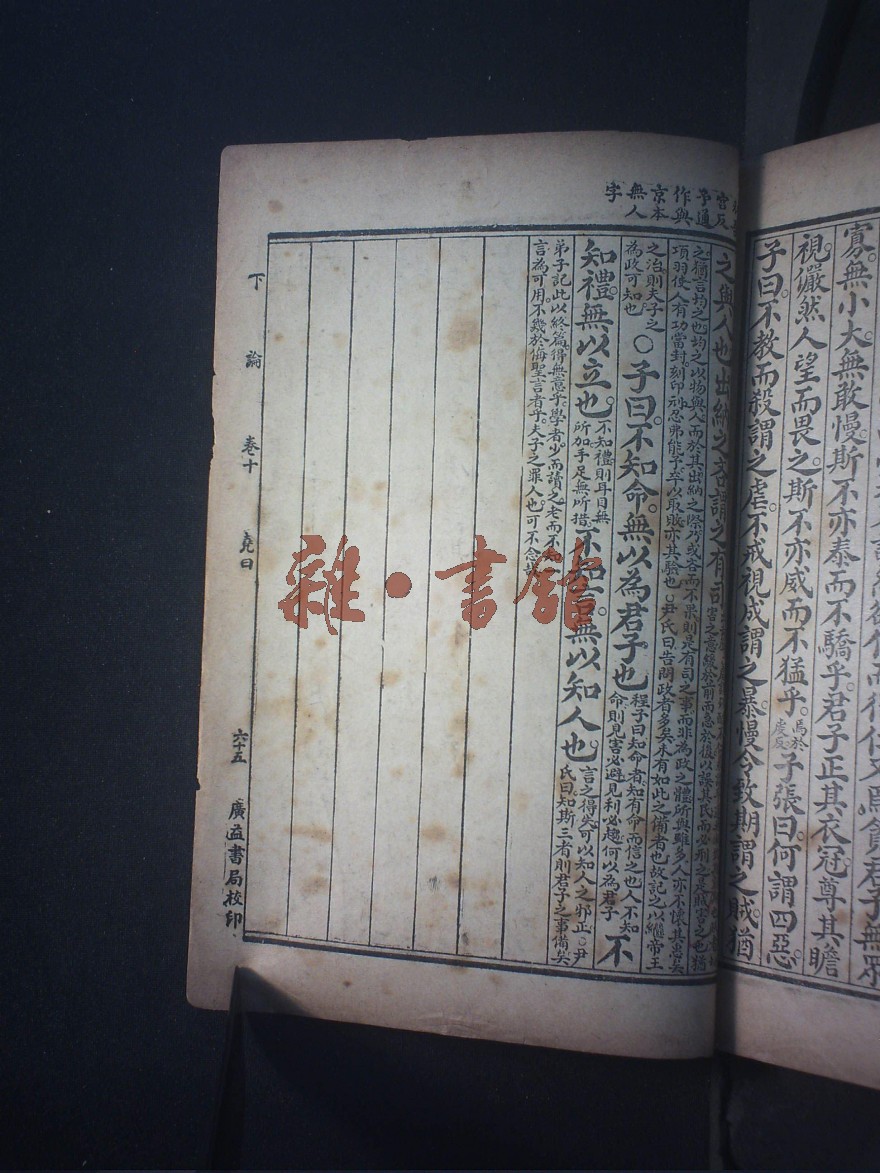 寡無小大無敢慢斯不亦泰而不驕乎君子正其衣冠尊其瞻
視儼然人望而畏之斯不亦威而不猛乎
子張曰何謂四惡
子曰不教而殺謂之虐不戒視成謂之暴慢令致期謂之賊猶
之與人也出納之吝謂之有司
之猶言均之也均之以物與人而於其出納之際乃或吝而不果則是有司之事而非為政之體所與雖多人亦不懷其惠矣
項羽使人有功當封刻印刓忍弗能予卒以取敗亦其驗也○尹氏曰告問政者多矣未有如此之備者也故記之以繼帝王
之治則夫子之
為政可知也
○子曰不知命無以為君子也
程子曰知命者知有命而信之也人不知
命則見害必避見利必趨何以為君子
不
知禮無以立也
不知禮則耳目無
所加手足無所措
不知言無以知人也
言之得失可以知人之邪正○尹
氏曰知斯三者則君子之事備矣
弟子記此以終篇得無意乎學者少而讀之老而不知一
言為可用不幾於侮聖言者乎夫子之罪人也可不念哉
京本
無人
字
下論
卷十
堯曰
六十五
廣益書局校印
雜·書館